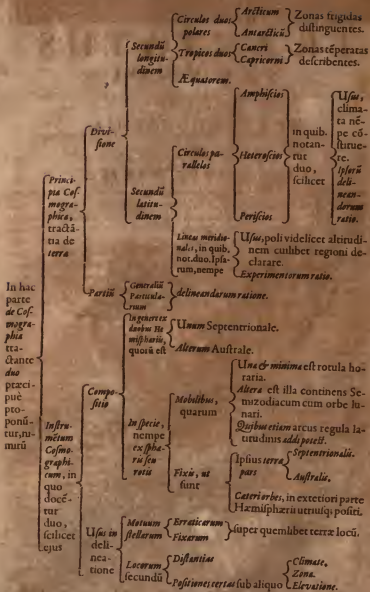 In hac
parte
de Cos-
mogra-
phia
tra-
ctante
duo
præci-
puè
pro-
ponū-
tur, ni-
mirū
Princi-
pia Cos-
mogra-
phica,
tractā-
tia de
terra
Divi-
sione
Secundū
longitu-
dinem
Circulos duos
polares
Arcticum
Antarcticū
Zonas frigidas
distinguentes.
Tropicos duos
Cancri
Capricorni
Zonas tēperatas
describentes.
Æquatorem.
Secundū
latitu-
dinem
Circulos pa-
rallelos
Amphiscios
Heteroscios
Periscios
in quib.
notan-
tur
duo,
scilicet
Usus,
clima-
ta nē-
pe cō-
stitue-
re.
Ipsorū
deli-
nean-
dorum
ratio.
Lineas meridio-
nales, in quib.
not. duo. Ipsa-
rum, nempe
Usus, poli videlicet altitudi-
nem cuilibet regioni de-
clarare.
Experimentorum ratio.
Partiū
Generaliū
Particula-
rium
delineandarum ratione.
Instru-
mētum
Cosmo-
graphi-
cum, in
quo
docē-
tur
duo,
scilicet
ejus
Compo-
sitio
In genere ex
duobus He
misphæriis,
quorū est
Unum Septentrionale.
Alterum Australe.
In specie,
nempe
ex sphæ-
ris seu
rotis
Mobilibus,
quarum
Una & minima est rotula ho-
raria.
Altera est illa continens Se-
mizodiacum cum orbe lu-
nari.
Quibus etiam arcus regula la-
titudinis addi potest.
Fixis, ut
sunt
Ipsius terræ
pars
Septentrionalis.
Australis.
Cæteri orbes, in exteriori parte
Hæmisphærii utriusq; positi.
Usus in
deli-
nea-
tione
Motuum
stellarum
Erraticarum
Fixarum
super quemlibet terræ locū.
Locorum
secundū
Distantias
Positiones certas sub aliquo
Climate.
Zona.
Elevatione.